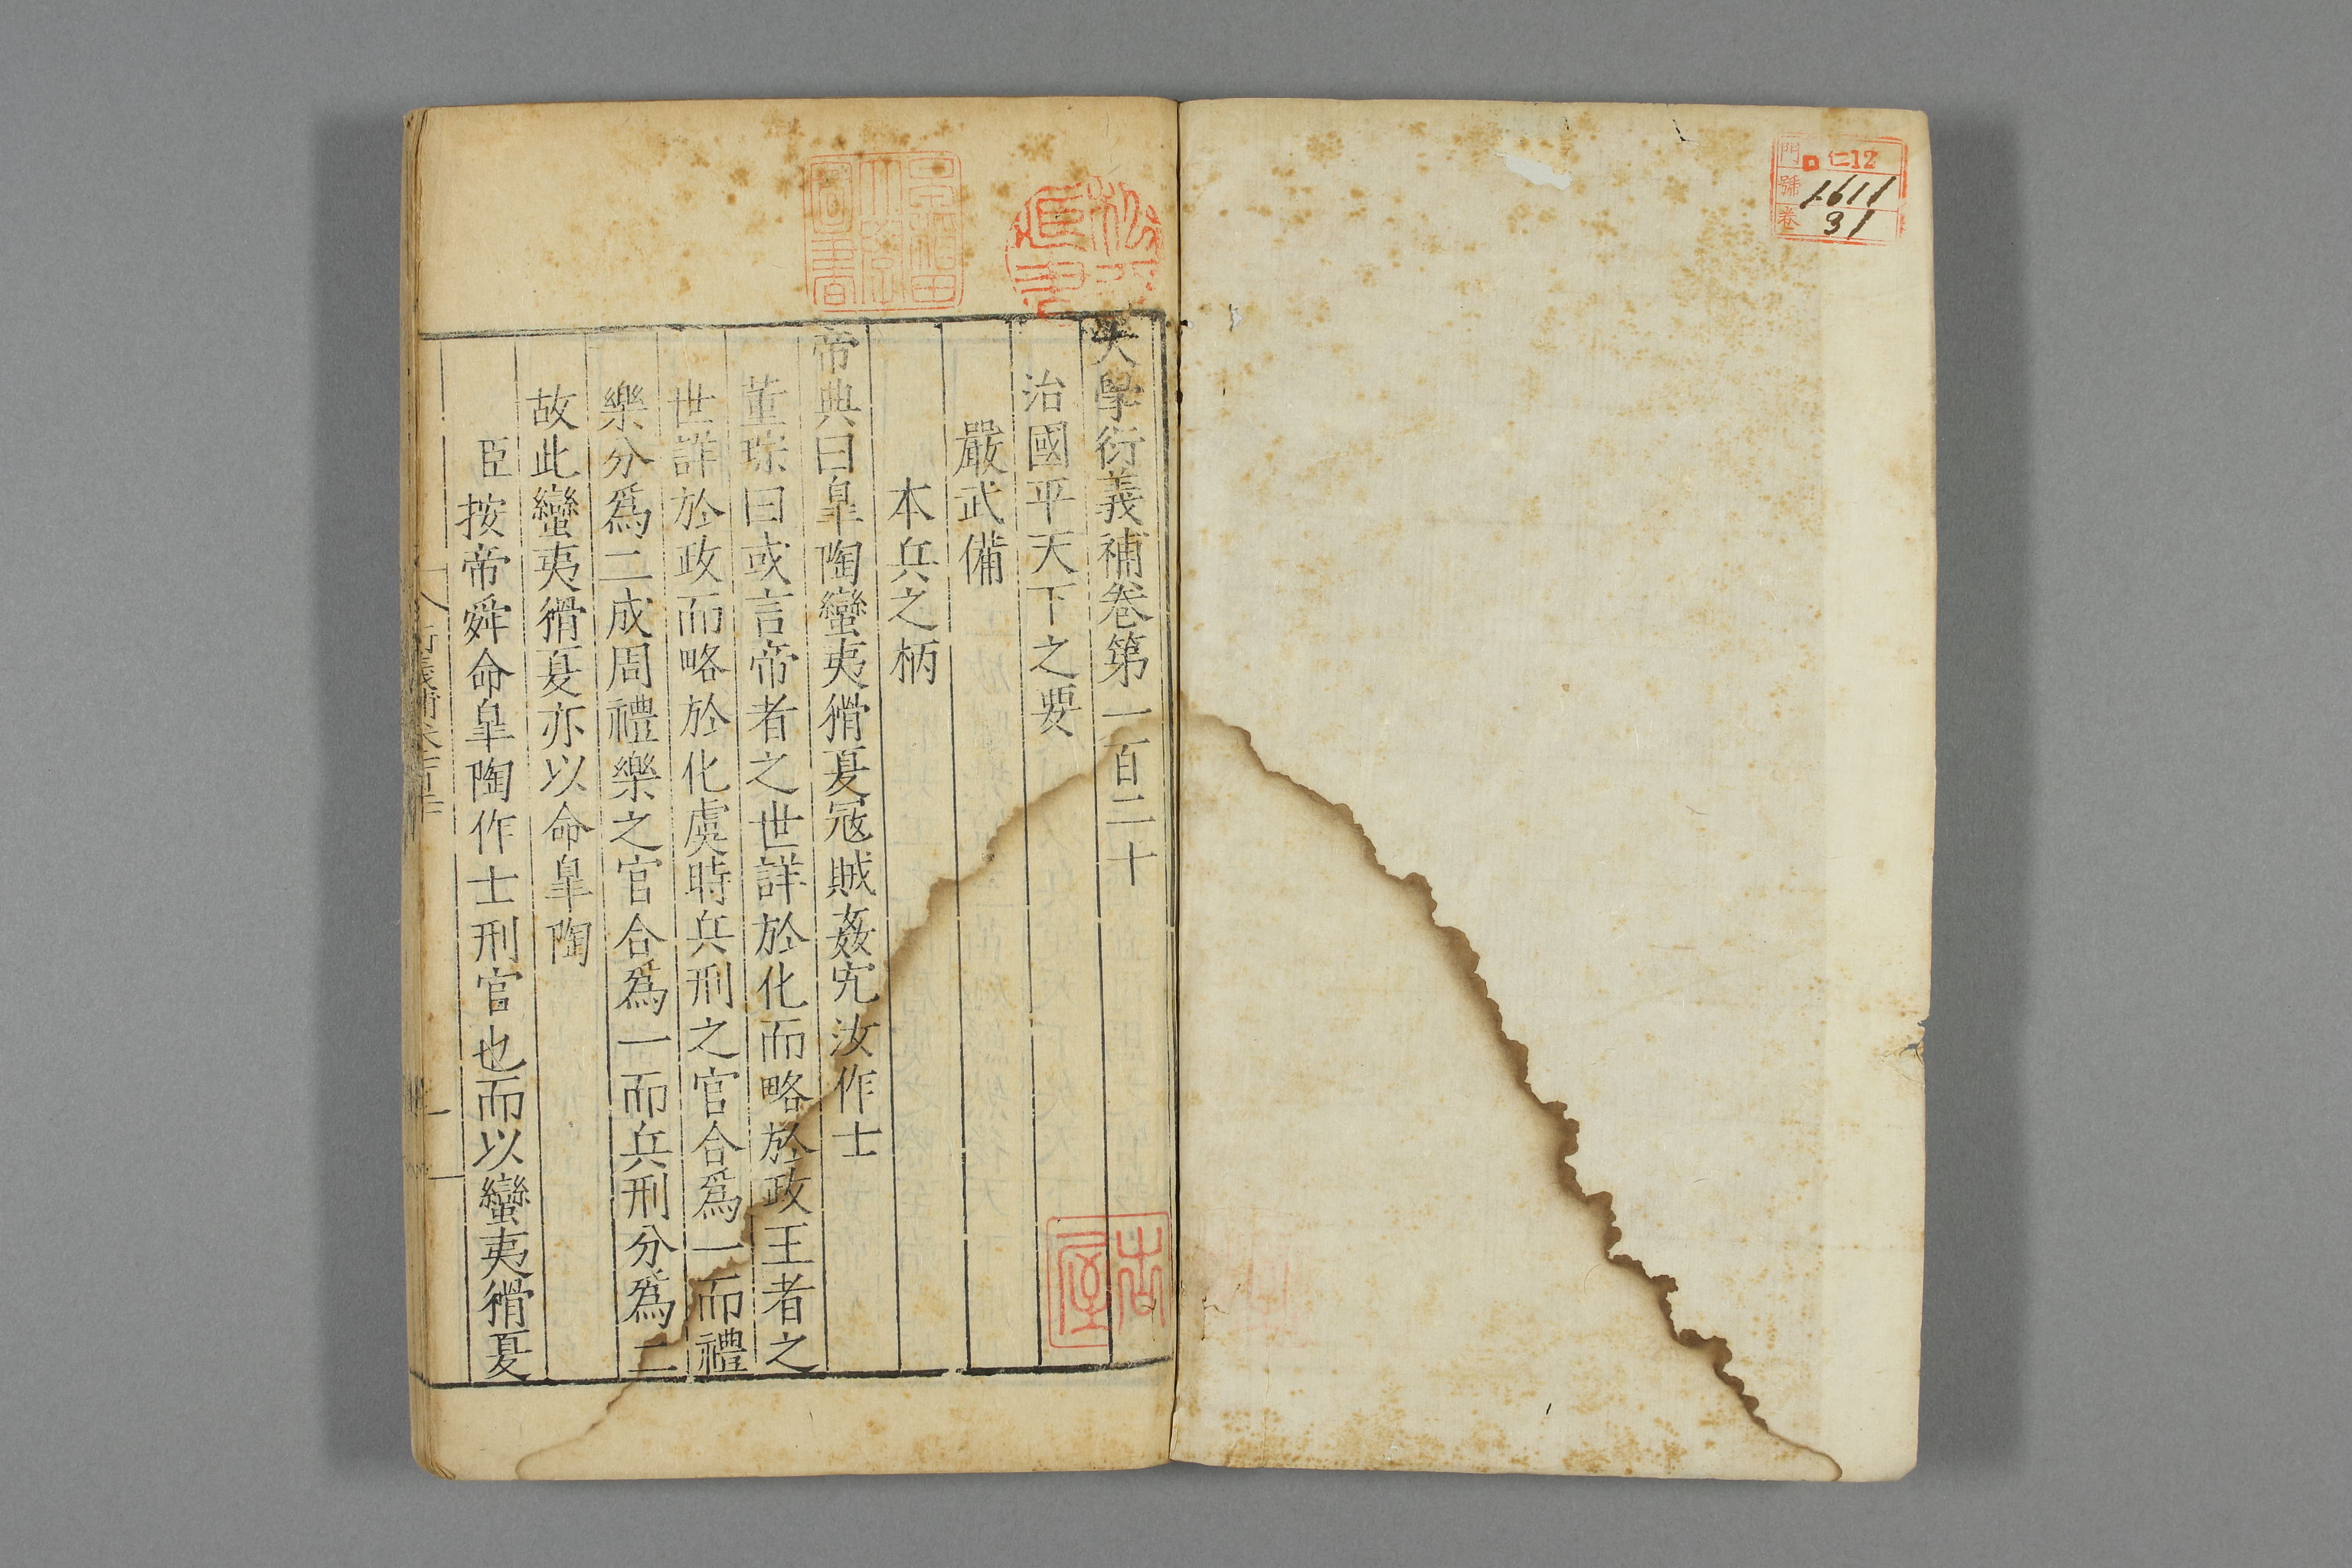 門 仁12
號 1611
卷 31
大學衍義補卷第一百二十
治國平天下之要
嚴武備
本兵之柄
帝典曰皐陶蠻夷猾夏寇賊姦宄汝作士
董琮曰或言帝者之世詳於化而略於政王者之
世詳於政而略於化虞時兵刑之官合爲一而禮
樂分爲二成周禮樂之官合爲一而兵刑分爲二
故此蠻夷猾夏亦以命皐陶
臣按帝舜命皐陶作士刑官也而以蠻夷猾夏